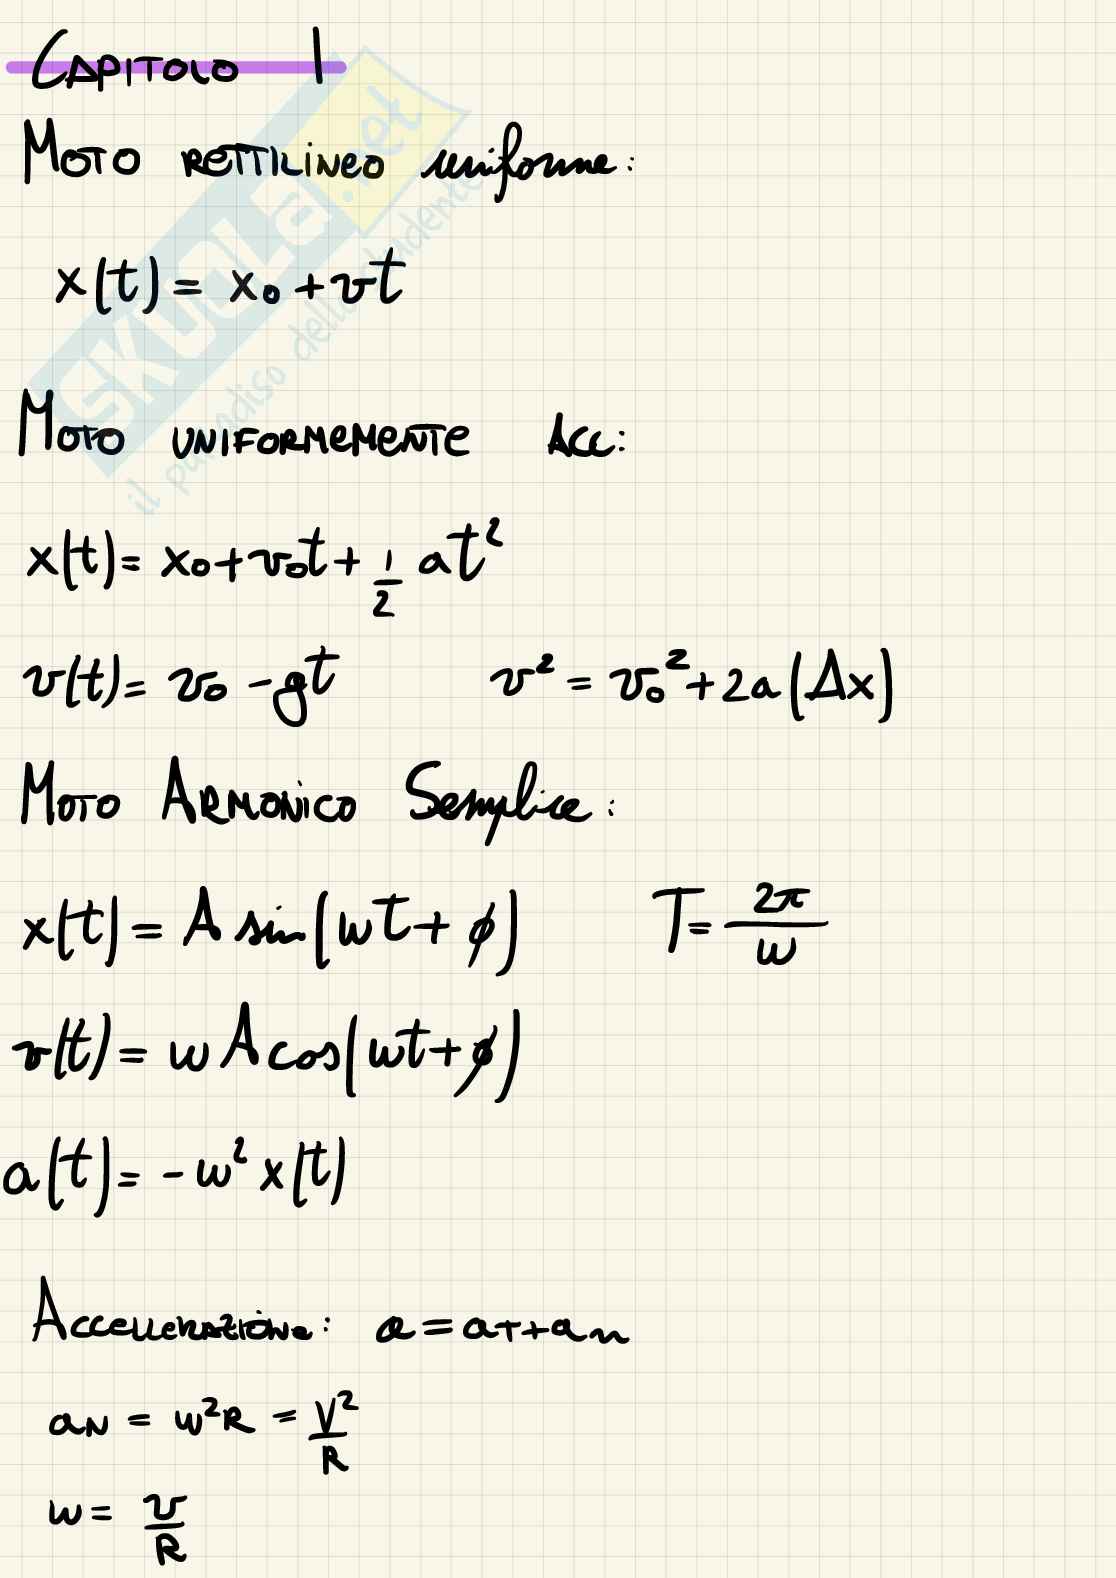 CAPITOLO 1
MOTO RETTILINEO uniforme:
x(t) = x₀ + vt
MOTO UNIFORMEMENTE Acc:
x(t) = x₀ + v₀t + 1/2 at²
v(t) = v₀ - gt    v² = v₀² + 2a(Δx)
MOTO ARMONICO Semplice:
x(t) = A sin(wt + φ)    T = 2π/w
v(t) = w A cos(wt + φ)
a(t) = - w² x(t)
ACCELLERAZIONE: a = aT + an
aN = w²R = V²/R
w = v/R
SKUOLA.net
il paradiso dello studente